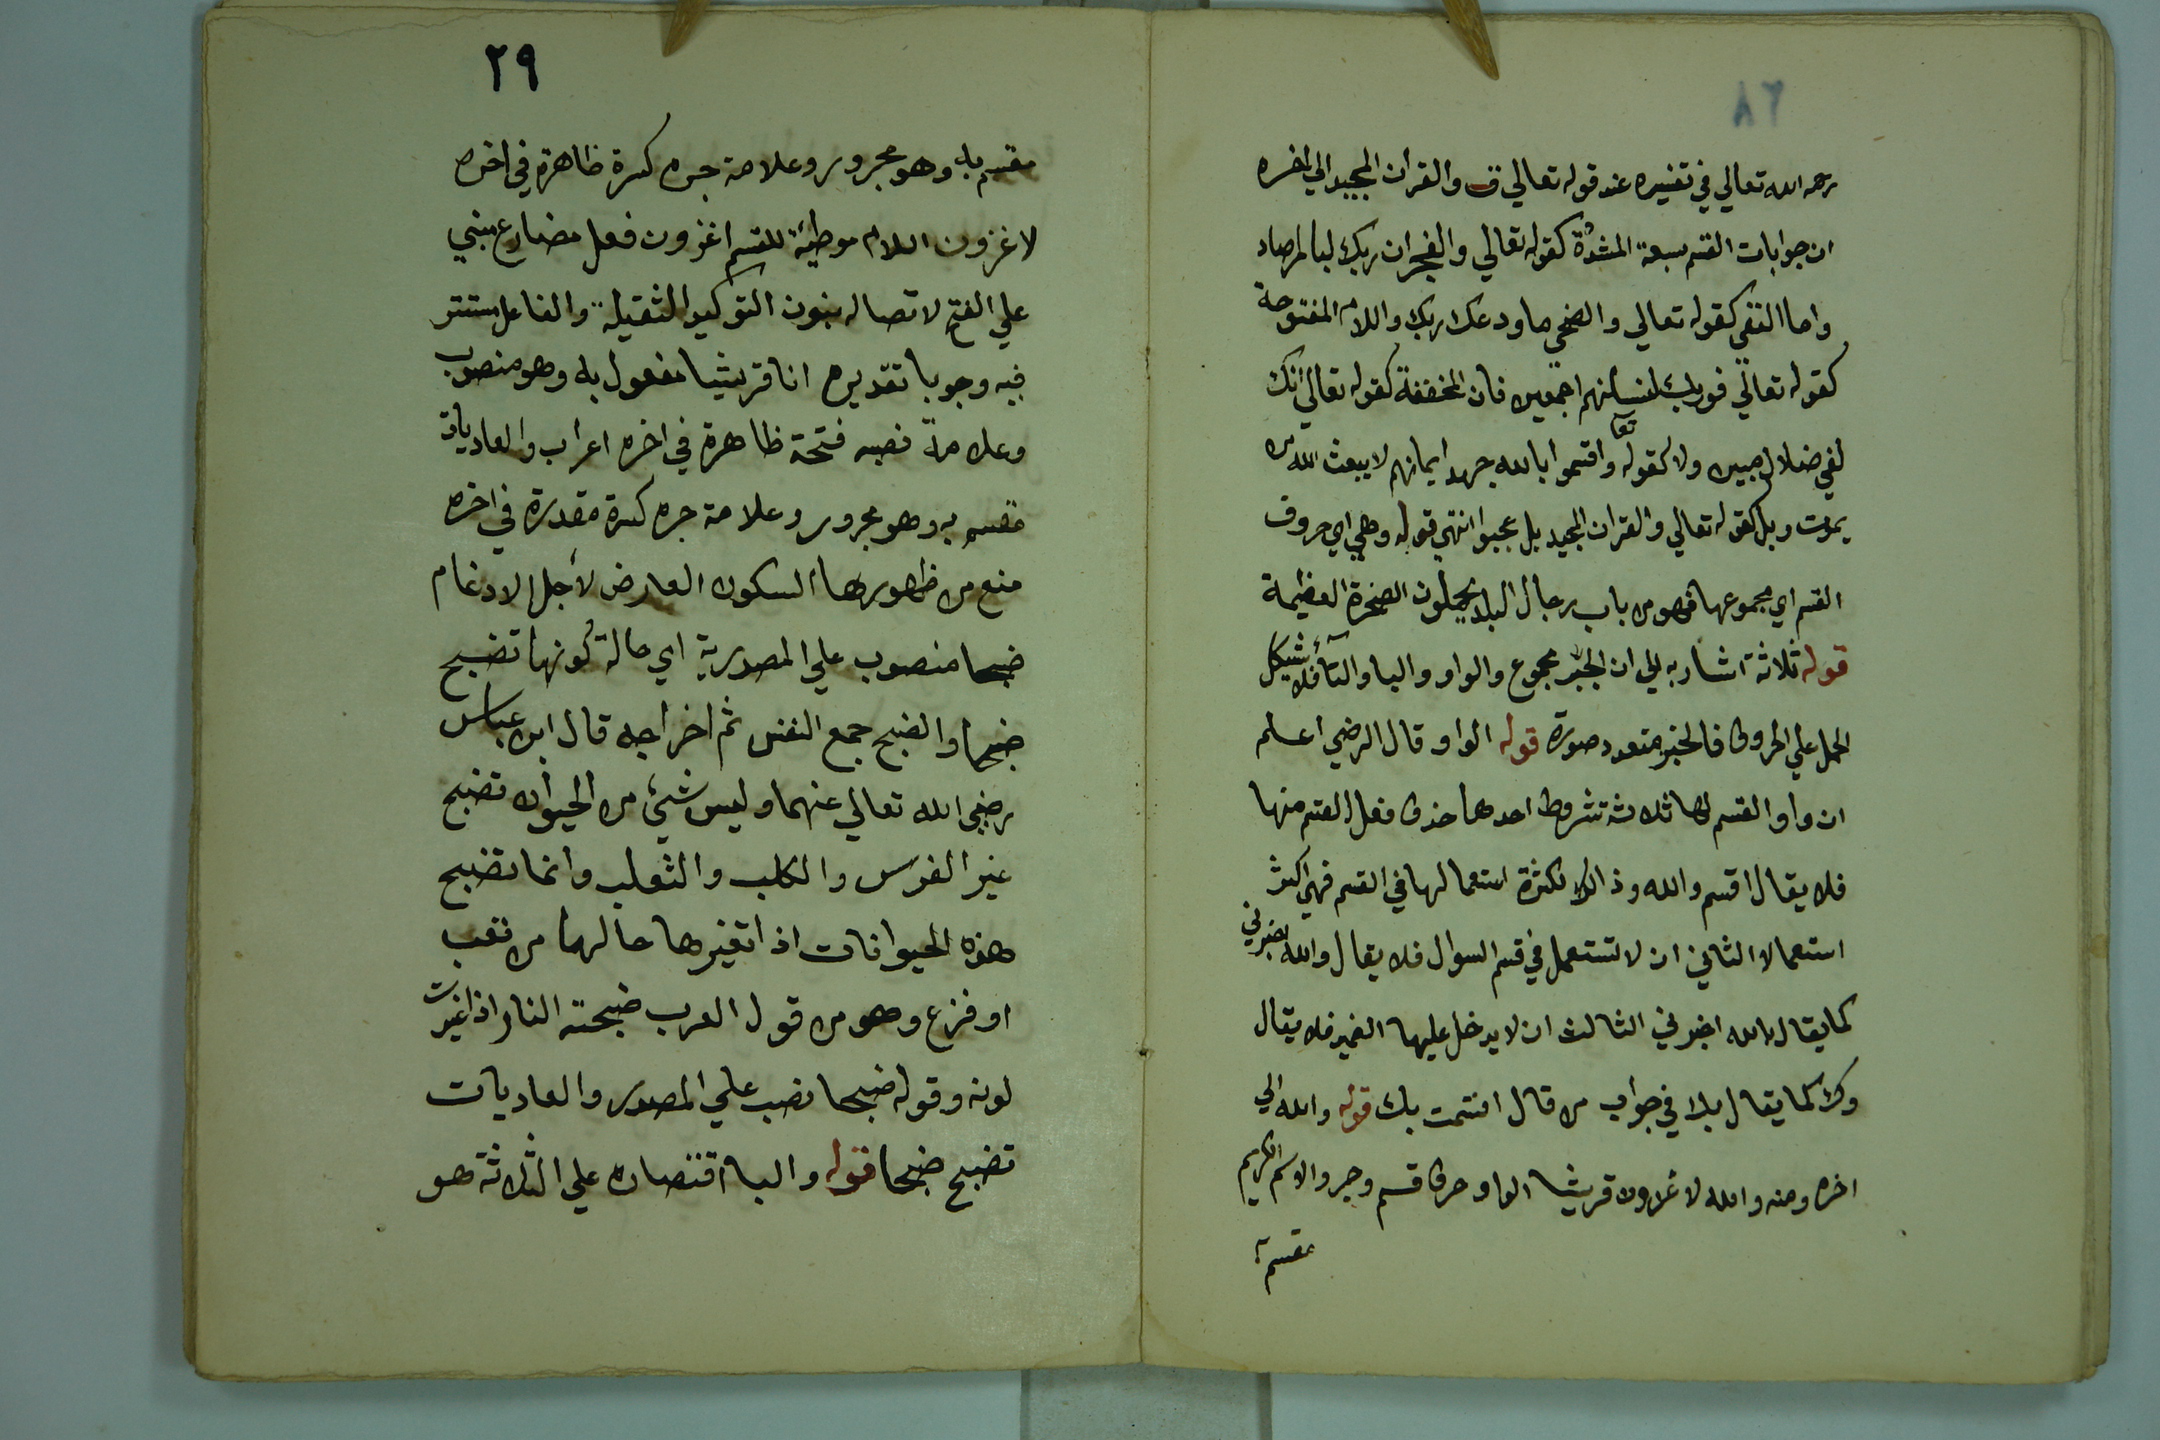 ٨٢
رحمه الله تعالي في تفسيره عند قوله تعالي ق والقران المجيد الي اخره
ان جوابات القسم سبعة المشدة كقوله تعالي والفجر ان ربك لبالمرصاد
واما النفي كقوله تعالي والضحي ما ودعك ربك واللام المفتوحة
كقوله تعالي فوربك لنسئلنهم اجمعين فان المخففة كقوله تعالي انك
لفي ضلال مبين ولا كقوله تعا واقسموا بالله جهد ايمانهم لا يبعث الله من
يموت وبل كقوله تعالي والقران المجيد بل عجبوا انتهي قوله وهي اي حروف
القسم اي مجموعها فهو من باب رجال البلد يحملون الصخرة العظيمة
قوله ثلاثة اشار به الي ان الخبر مجموع والواو والبا والتآء فلا يشكل
الحمل علي الحروف فالخبر متعدد صورة قوله الواو قال الرضي اعلم
ان واو القسم لها ثلاثة شروط احدها حذف فعل القسم منها
فلا يقال اقسم والله وذالك لكثرة استعمالها في القسم فهي اكثر
استعمالا الثاني ان لا تستعمل في قسم السوال فلا يقال والله اخبرني
كما يقال بالله اخبرني الثالث ان لا يدخل عليها الضمير فلا يقال
وك كما يقال بك في جواب من قال اقسمت بك قوله والله الي
اخره ومنه والله لاغزون قريشا الواو حرف قسم وجر والاسم الكريم
مقسم به
٢٩
مقسم به وهو مجرور وعلامة جره كسرة ظاهرة في اخره
لاغزون اللام موطئة للقسم اغزون فعل مضارع مبني
علي الفتح لاتصاله بنون التوكيد الثقيلة والفاعل مستتر
فيه وجوبا تقديره انا قريشا مفعول به وهو منصوب
وعلامة نصبه فتحة ظاهرة في اخره اعراب والعاديات
مقسم به وهو مجرور وعلامة جره كسرة مقدرة في اخره
منع من ظهورها السكون العارض لأجل الادغام
ضبحا منصوب علي المصدرية اي حالة كونها تضبح
ضبحا والضبح جمع النفس ثم اخراجه قال ابن عباس
رضي الله تعالي عنهما وليس شيئ من الحيوان تضبح
غير الفرس والكلب والثعلب وانما تضبح
هذه الحيوانات اذا تغيرها حالها من تعب
او فزع وهو من قول العرب ضبحته النار اذا غيرت
لونه وقوله ضبحا نصب علي المصدر والعاديات
تضبح ضبحا قوله والبا اقتصاره علي الثلاثة هو